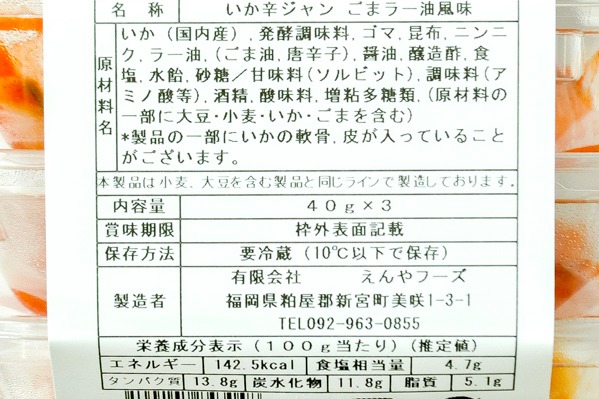 名 称 いか辛ジャン ごまラー油風味
原材料名
いか（国内産）, 発酵調味料, ゴマ, 昆布, ニンニ
ク, ラー油,（ごま油, 唐辛子）, 醤油, 醸造酢, 食
塩, 水飴, 砂糖／甘味料（ソルビット）, 調味料（ア
ミノ酸等）, 酒精, 酸味料, 増粘多糖類,（原材料の
一部に大豆・小麦・いか・ごまを含む）
*製品の一部にいかの軟骨, 皮が入っていること
がございます。
本製品は小麦、大豆を含む製品と同じラインで製造しております。
内容量 40g×3
賞味期限 枠外表面記載
保存方法 要冷蔵（10℃以下で保存）
製造者
有限会社 えんやフーズ
福岡県粕屋郡新宮町美咲1-3-1
TEL092-963-0855
栄養成分表示（100g当たり）（推定値）
エネルギー 142.5kcal 食塩相当量 4.7g
タンパク質 13.8g 炭水化物 11.8g 脂質 5.1g